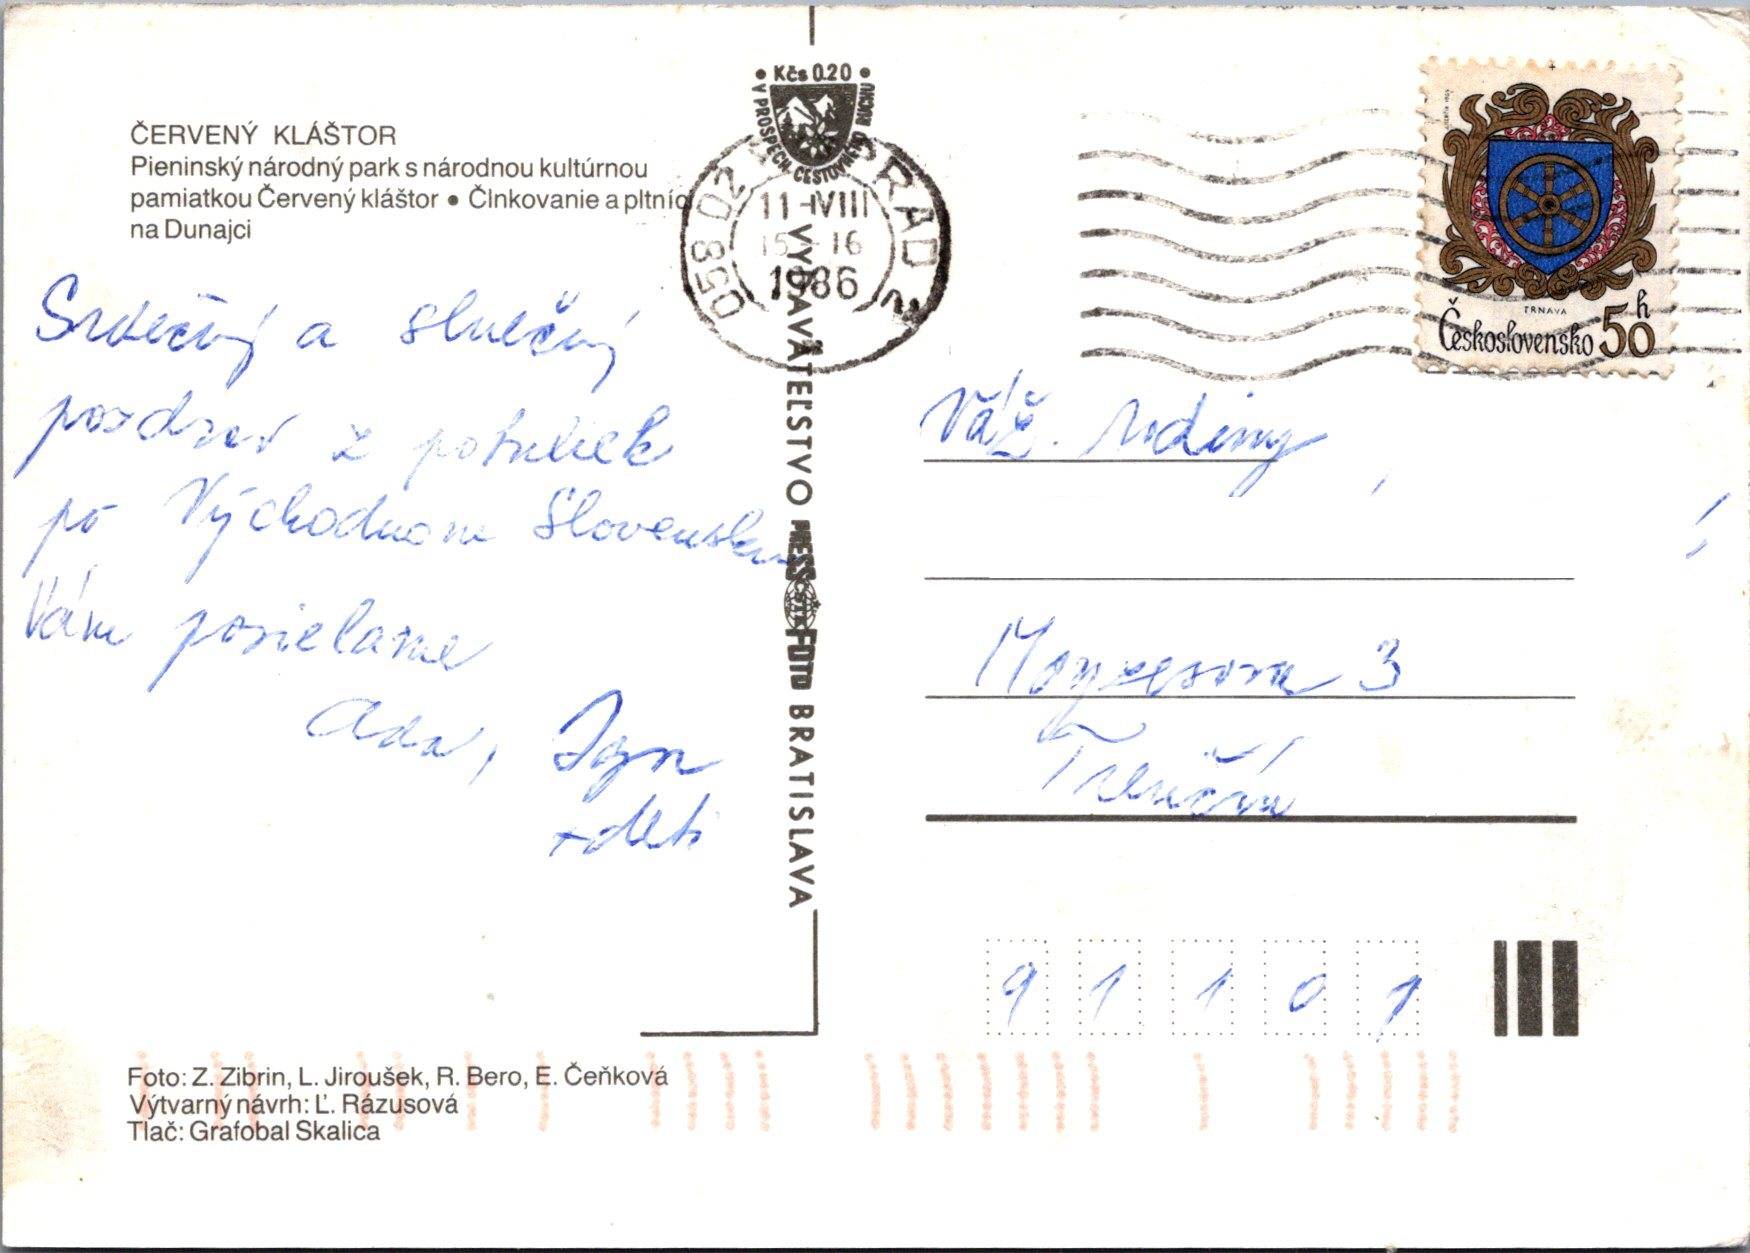 ČERVENÝ KLÁŠTOR
Pieninský národný park s národnou kultúrnou
pamiatkou Červený kláštor • Člnkovanie a pltníc
na Dunajci
Srdečný a slnečný
pozdrav z potuliek
po Východnom Slovensku
Vám posielame
Ada,
+ deti
Foto: Z. Zibrin, L. Jiroušek, R. Bero, E. Čeňková
Výtvarný návrh: Ľ. Rázusová
Tlač: Grafobal Skalica
• Kčs 0.20 •
V PROSPECH CESTOVNÉHO RUCHU
VYDAVATEĽSTVO PRESSFOTO BRATISLAVA
ČSTK
058 02 POPRAD 2
11-VIII
15-16
1986
TRNAVA
Československo 50 h
Váž. rodiny
Moyzesova 3
Trenčín
9 1 1 0 1